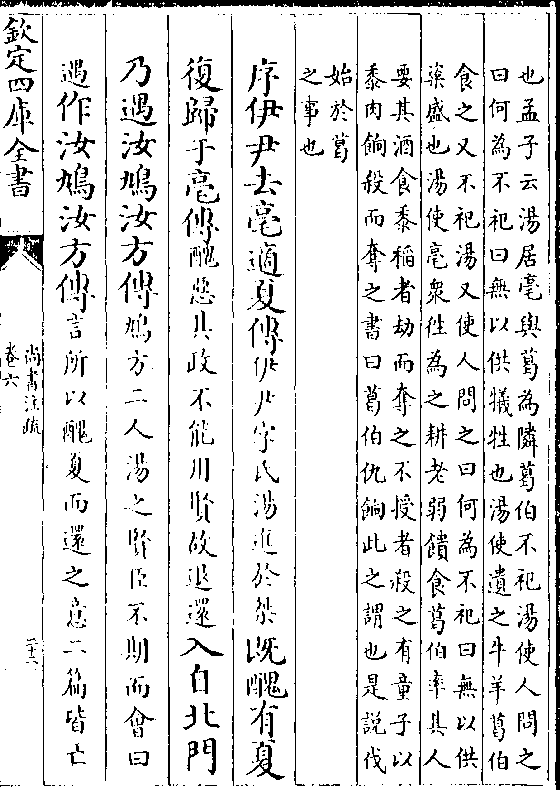 也孟子云湯居亳與葛為隣葛伯不祀湯使人問之
曰何為不祀曰無以供犧牲也湯使遺之牛羊葛伯
食之又不祀湯又使人問之曰何為不祀曰無以供
粢盛也湯使亳衆徃為之耕老弱饋食葛伯率其人
要其酒食黍稻者劫而奪之不授者殺之有童子以
黍肉餉殺而奪之書曰葛伯仇餉此之謂也是説伐
始於葛
之事也
序伊尹去亳適夏傳伊尹字氏湯進於桀既醜有夏
復歸于亳傳醜惡其政不能用賢故退還入自北門
乃遇汝鳩汝方傳鳩方二人湯之賢臣不期而會曰
遇作汝鳩汝方傳言所以醜夏而還之意二篇皆亡
欽定四庫全書
尚書注疏
卷六
二十二